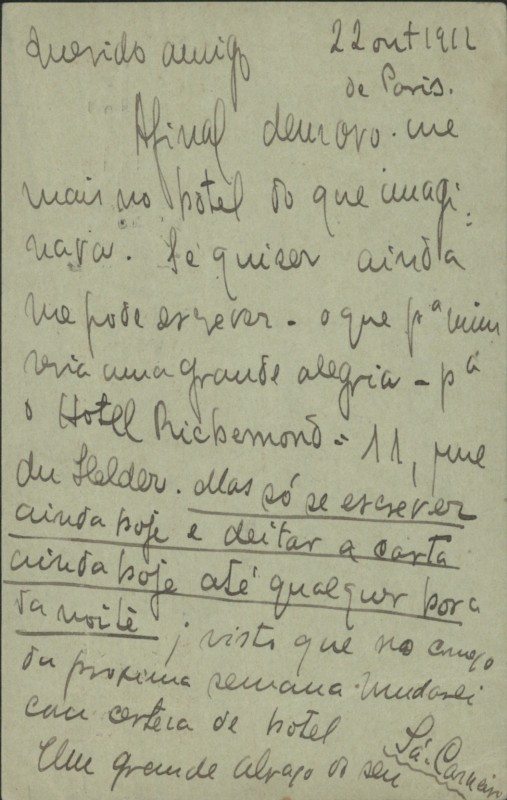 Querido amigo
22 out 1912
de Paris.
Afinal demoro-me
mais no hotel do que imagi-
nava. Se quiser ainda
me pode escrever - o que pª mim
seria uma grande alegria - pª
o Hotel Richemond - 11, rue
du Helder. Mas só se escrever
ainda hoje e deitar a carta
ainda hoje até qualquer hora
da noite; visto que no começo
da proxima semana mudarei
com certeza de hotel
Um grande abraço do seu
Sá-Carneiro